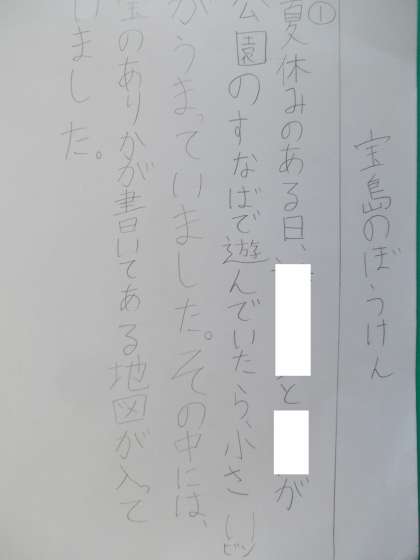 宝島のぼうけん
①
夏休みのある日、と が
公園のすなばで遊んでいたら、小さいビン
がうまっていました。その中には、
宝のありかが書いてある地図が入って
いました。